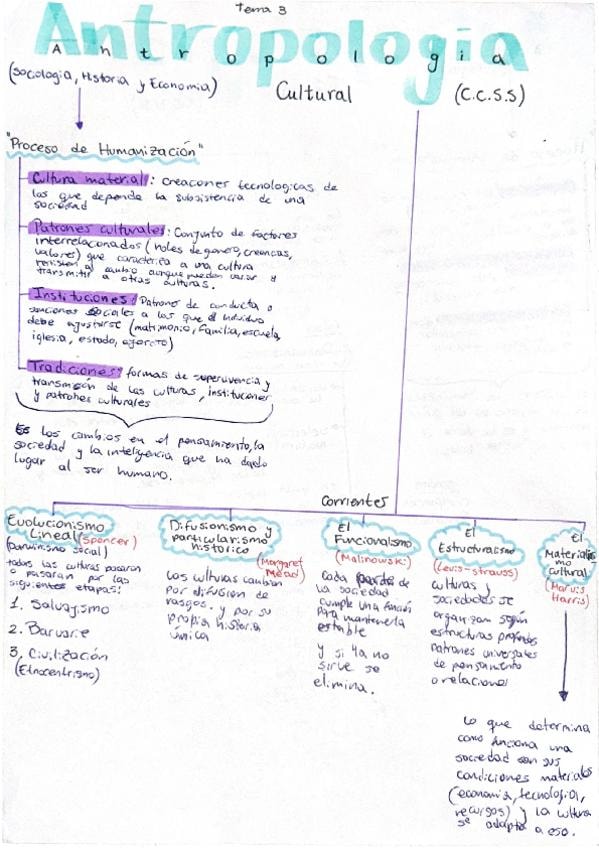 Tema 3
Antropología
Antropología
(Sociología, Historia y Economía)
Cultural
(C.C.S.S)
"Proceso de Humanización"
Cultura material: creaciones tecnologicas de
las que depende la subsistencia de una
sociedad
Patrones culturales: Conjunto de factores
interrelacionados (roles de genero, creencias,
valores) que caracteriza a una cultura
resisten al cambio aunque pueden variar y
transmitir a otras culturas.
Instituciones: Patrones de conducta o
sanciones sociales a las que el individuo
debe ajustarse (matrimonio, familia, escuela,
iglesia, estado, ejercito)
Tradiciones: formas de supervivencia y
transmisión de las culturas, instituciones
y patrones culturales
Es los cambios en el pensamiento, la
sociedad y la inteligencia que ha dado
lugar al ser humano.
Corrientes
Evolucionismo
Lineal (Spencer)
(Darwinismo social)
todas las culturas pasaron
o pasaran por las
siguientes etapas:
1. Salvajismo
2. Barbarie
3. Civilización
(Etnocentrismo)
Difusionismo y
particularismo
historico
(Margaret
Mead)
Las culturas cambian
por difusion de
rasgos. y por su
propia historia
única
El
Funcionalismo
(Malinowski)
Cada parte de
la sociedad
cumple una función
para mantenerla
estable
y si ya no
sirve se
elimina.
El
Estructuralismo
(Levis-strauss)
culturas y
sociedades se
organizan según
estructuras profundas
patrones universales
de pensamiento
o relaciones
El
Materialis-
mo
cultural
(Marvis
Harris)
Lo que determina
como funciona una
sociedad son sus
condiciones materiales
(economia, tecnologia,
recursos) y la cultura
se adapta a eso.